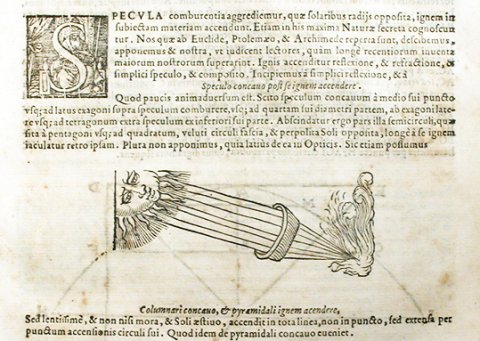 SPECVLA comburentia aggrediemur, quæ solaribus radijs opposita, ignem in
subiectam materiam accendunt. Etiam in his maxima Naturæ secreta cognoscun
tur. Nos quæ ab Euclide, Ptolemæo, & Archimede reperta sunt, describemus,
apponemus & nostra, vt iudicent lectores, quàm longè recentiorum inuenta
maiorum nostrorum superarint. Ignis accenditur reflexione, & refractione, &
simplici speculo, & composito. Incipiemus à simplici reflexione, & à
Speculo concauo post se ignem accendere.
Quod paucis animaduersum est. Scito speculum concauum à medio sui puncto
vsq; ad latus exagoni supra speculum comburere, vsq; ad quartam sui diametri partem, ab exagoni late
re vsq; ad tetragonum extra speculum ex inferiori sui parte. Abscindatur ergo pars illa semicirculi, quæ
sita à pentagoni vsq; ad quadratum, veluti circuli fascia, & perpolita Soli opposita, longè à se ignem
iaculatur retro ipsam. Plura non apponimus, quia latiùs de ea in Opticis. Sic etiam possumus
Columnari concauo, & pyramidali ignem accendere,
Sed lentissimè, & non nisi mora, & Soli æstiuo, accendit in tota linea, non in puncto, sed extensa per
punctum accensionis circuli sui. Quod idem de pyramidali concauo eueniet.